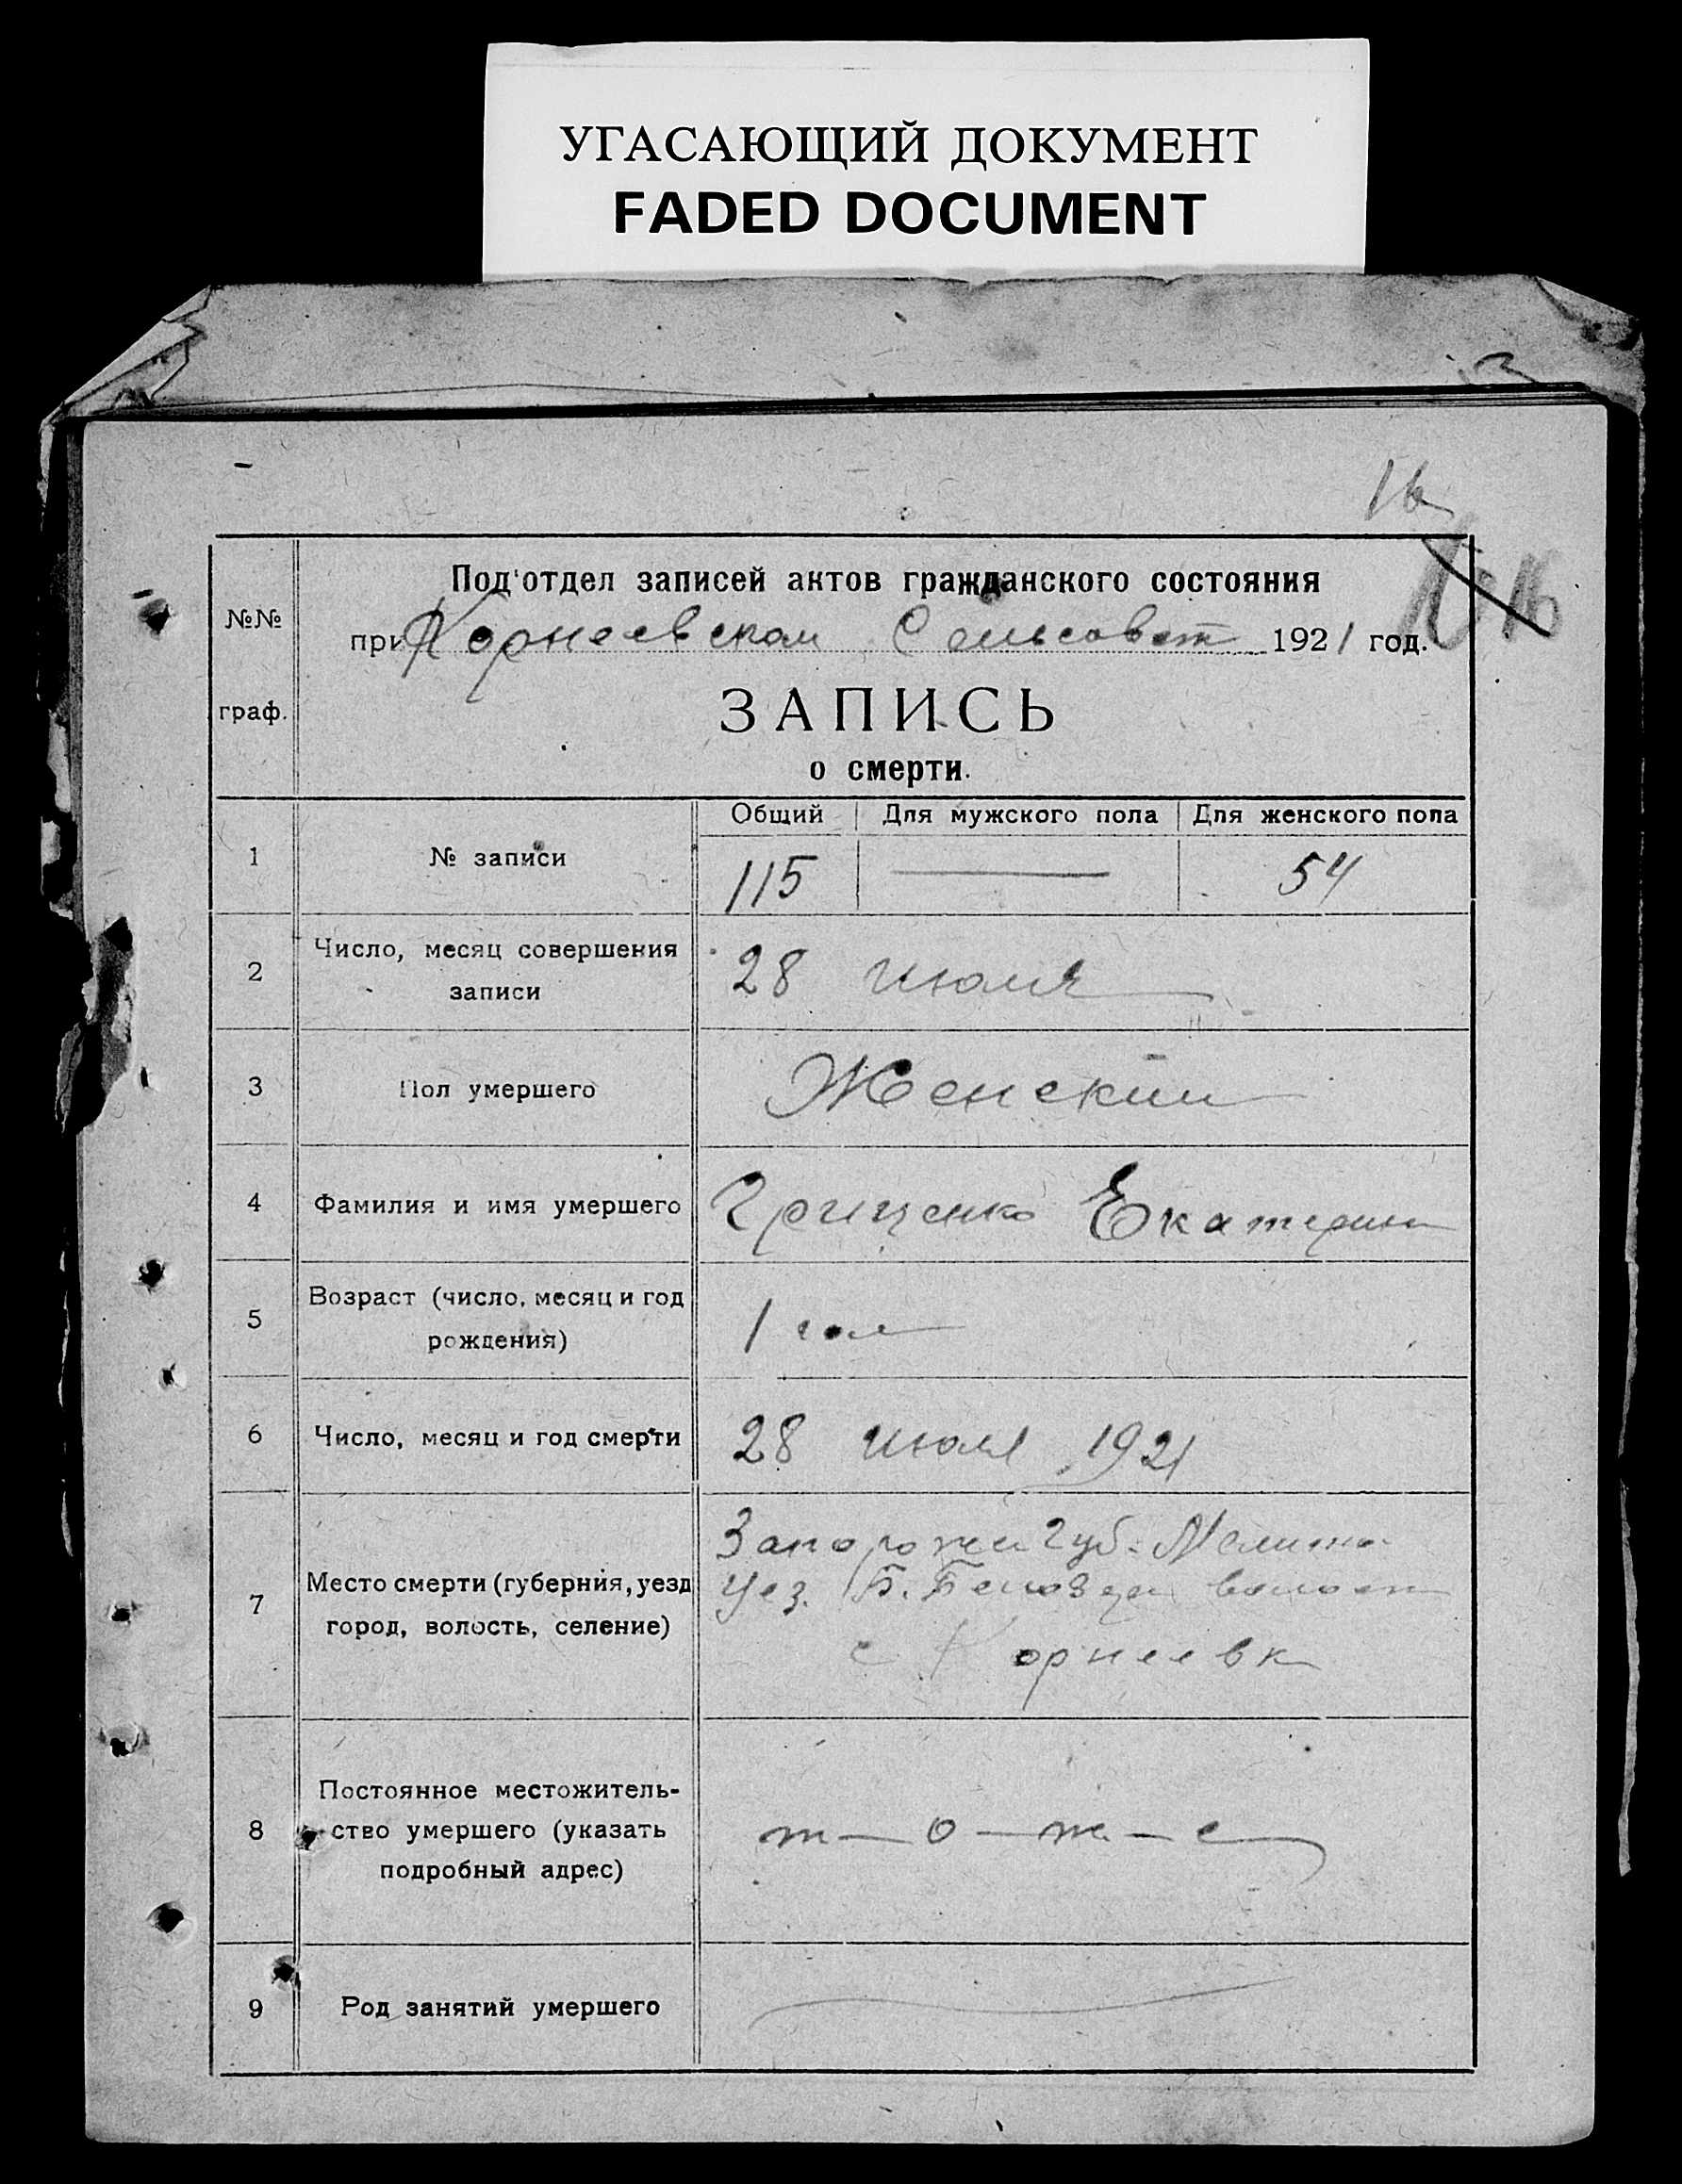 УГАСАЮЩИЙ ДОКУМЕНТ
FADED DOCUMENT
16
16
№№ граф.
Под'отдел записей актов гражданского состояния
при Корнеевском Сельсовет 1921 год.
ЗАПИСЬ
о смерти.
Общий Для мужского пола Для женского пола
1 № записи 115 — 54
2 Число, месяц совершения 28 июля
записи
3 Пол умершего Женский
4 Фамилия и имя умершего Грищенко Екатерина
5 Возраст (число, месяц и год 1 год
рождения)
6 Число, месяц и год смерти 28 июля 1921
Запорожск Губ. Мелито.
7 Место смерти (губерния, уезд Уез. Б. Белозер волост
город, волость, селение)
с Корнеевк
Постоянное местожитель-
8 ство умершего (указать т—о—ж—е
подробный адрес)
9 Род занятий умершего